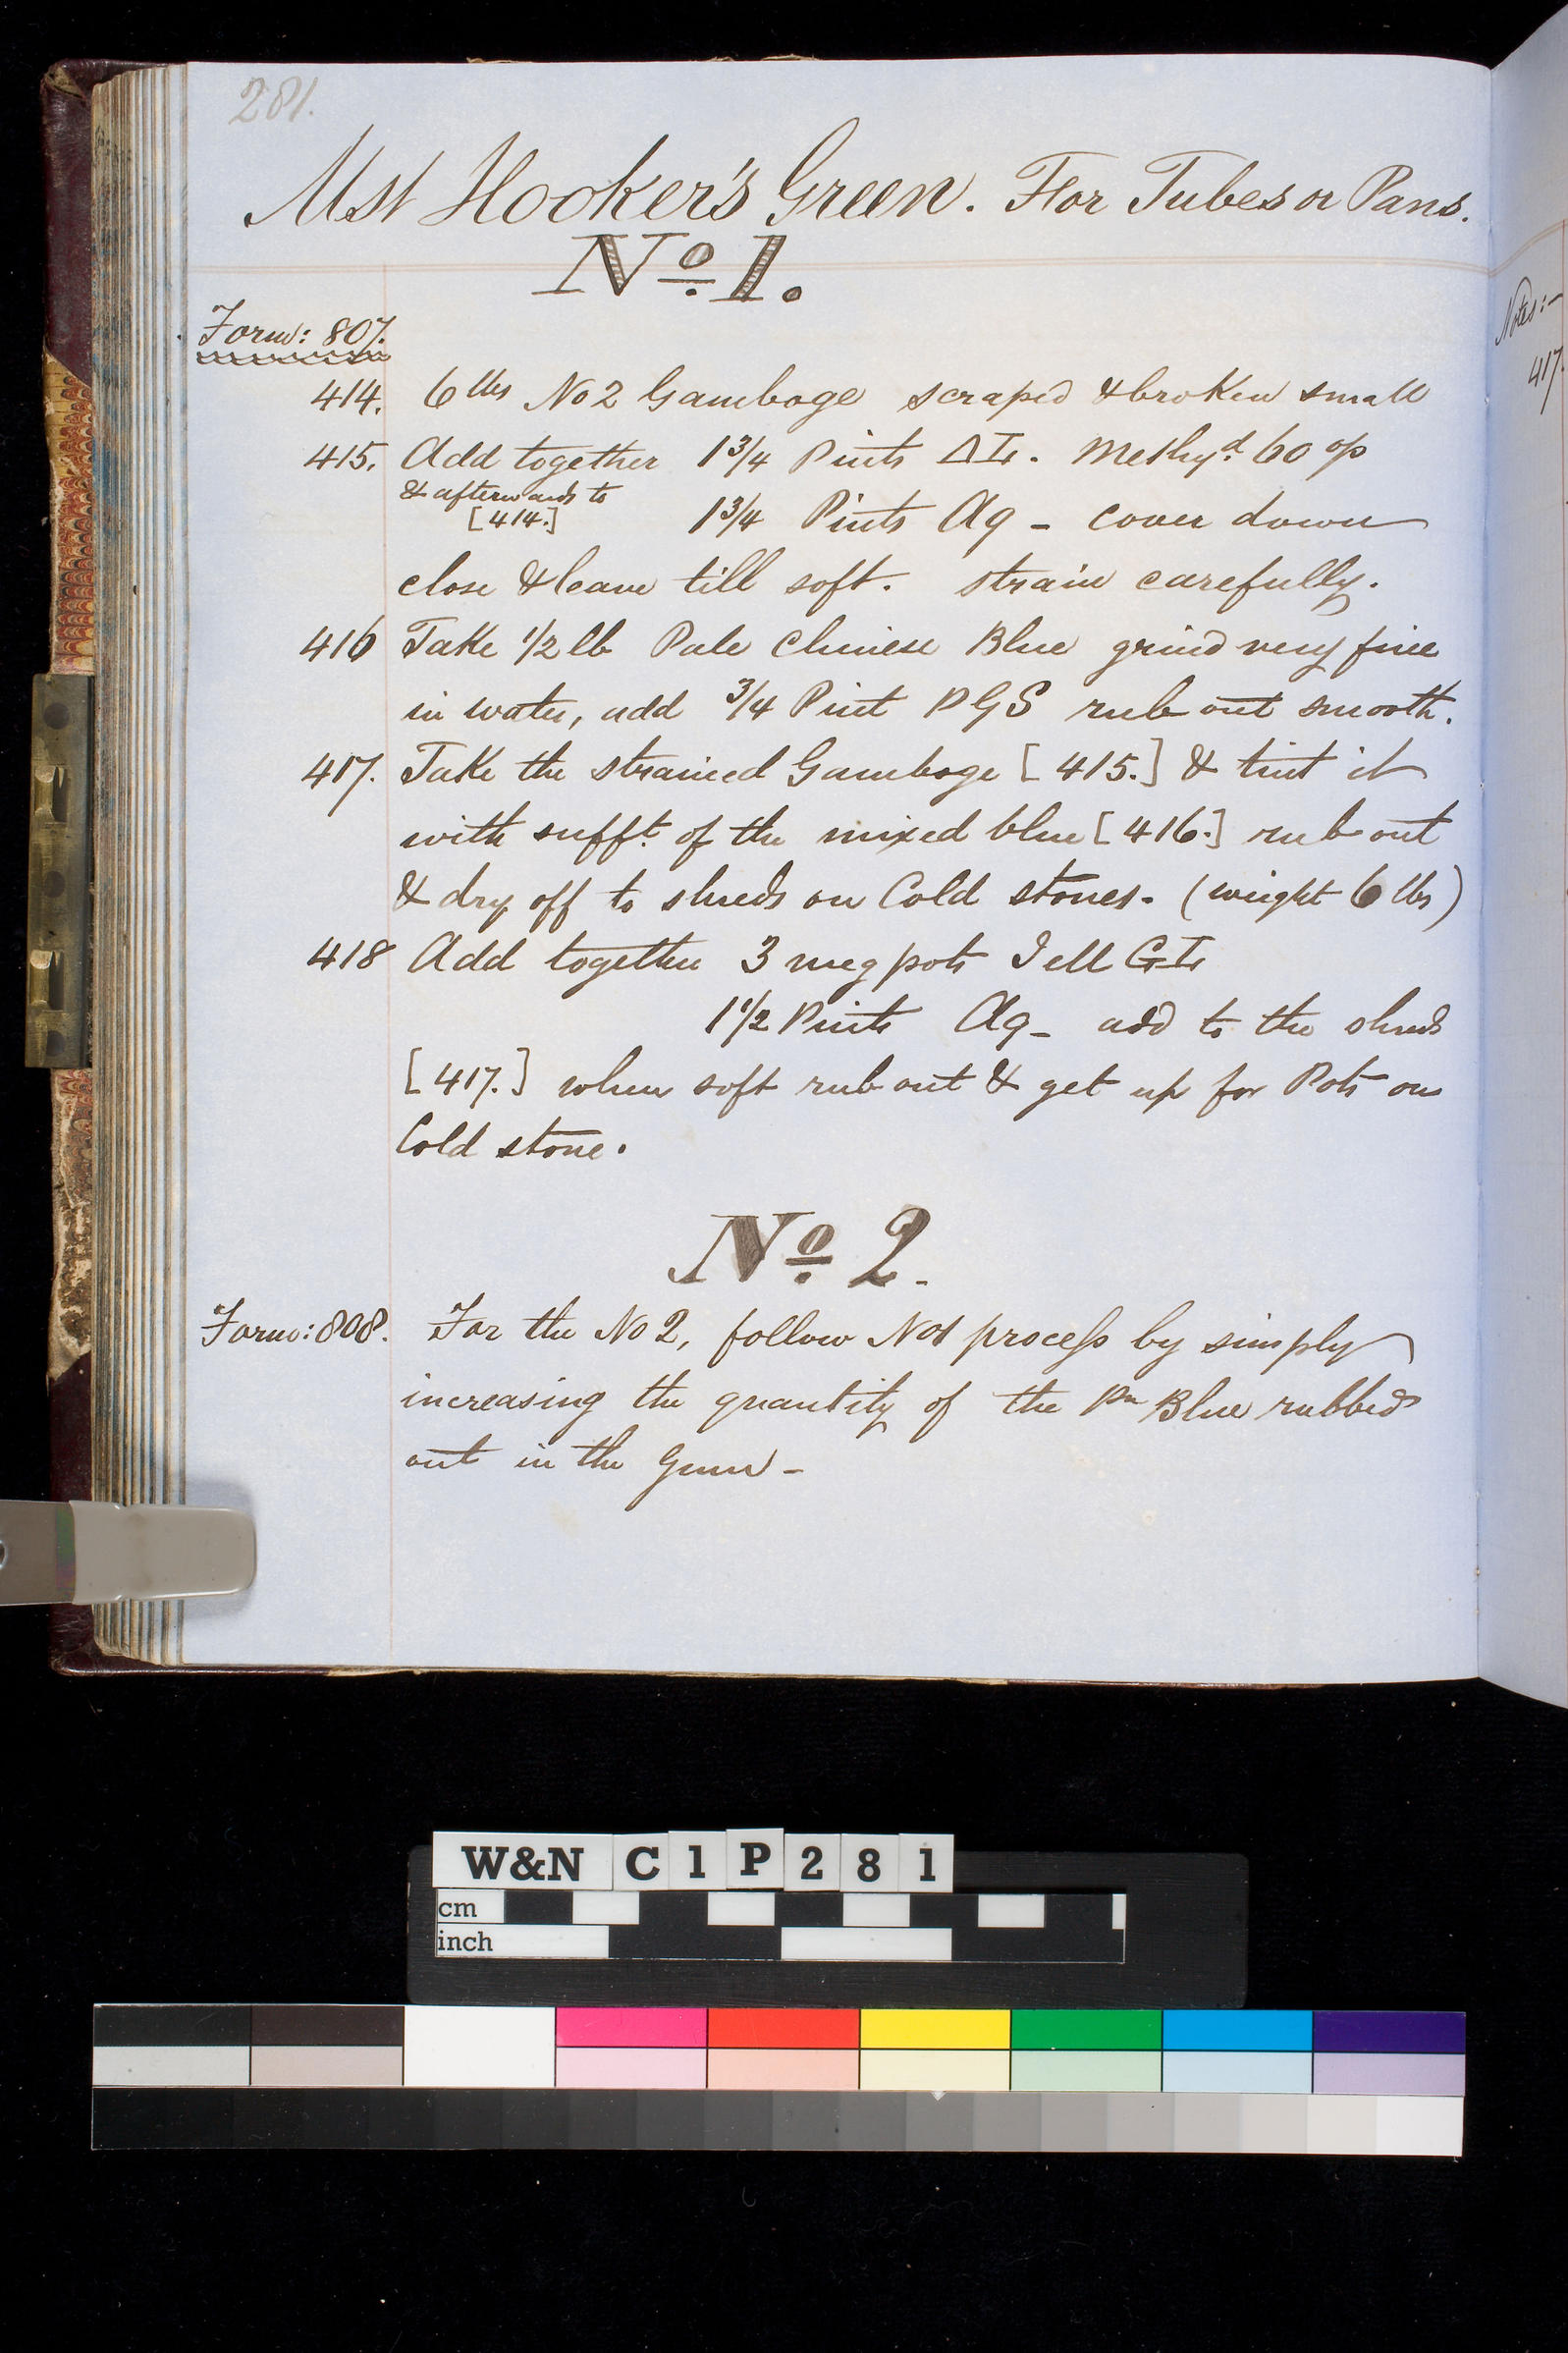 281.
Mst Hooker's Green. For Tubes or Pans.
No. 1.
Form: 807.
414. 6 lbs No 2 Gamboge scraped & broken small
415. Add together 1 3/4 Pints Methyd. 60 op
& afterwards to
[414.] 1 3/4 Pints Aq - cover down
close & leave till soft. strain carefully.
416 Take 1/2 lb Pale Chinese Blue grind very fine
in water, add 3/4 Pint PGS rub out smooth.
417. Take the strained Gamboge [415.] & tint it
with sufft. of the mixed blue [416.] rub out
& dry off to shreds on Cold stones. (weight 6 lbs)
418 Add together 3 meg pots
1 1/2 Pints Aq - add to the shreds
[417.] when soft rub out & get up for Pots on
Cold stone.
No. 2.
Form: 808. For the No 2, follow No 1 process by simply
increasing the quantity of the Pn Blue rubbed
out in the Gum -
Notes:-
417.
W&N C 1 P 2 8 1
cm
inch